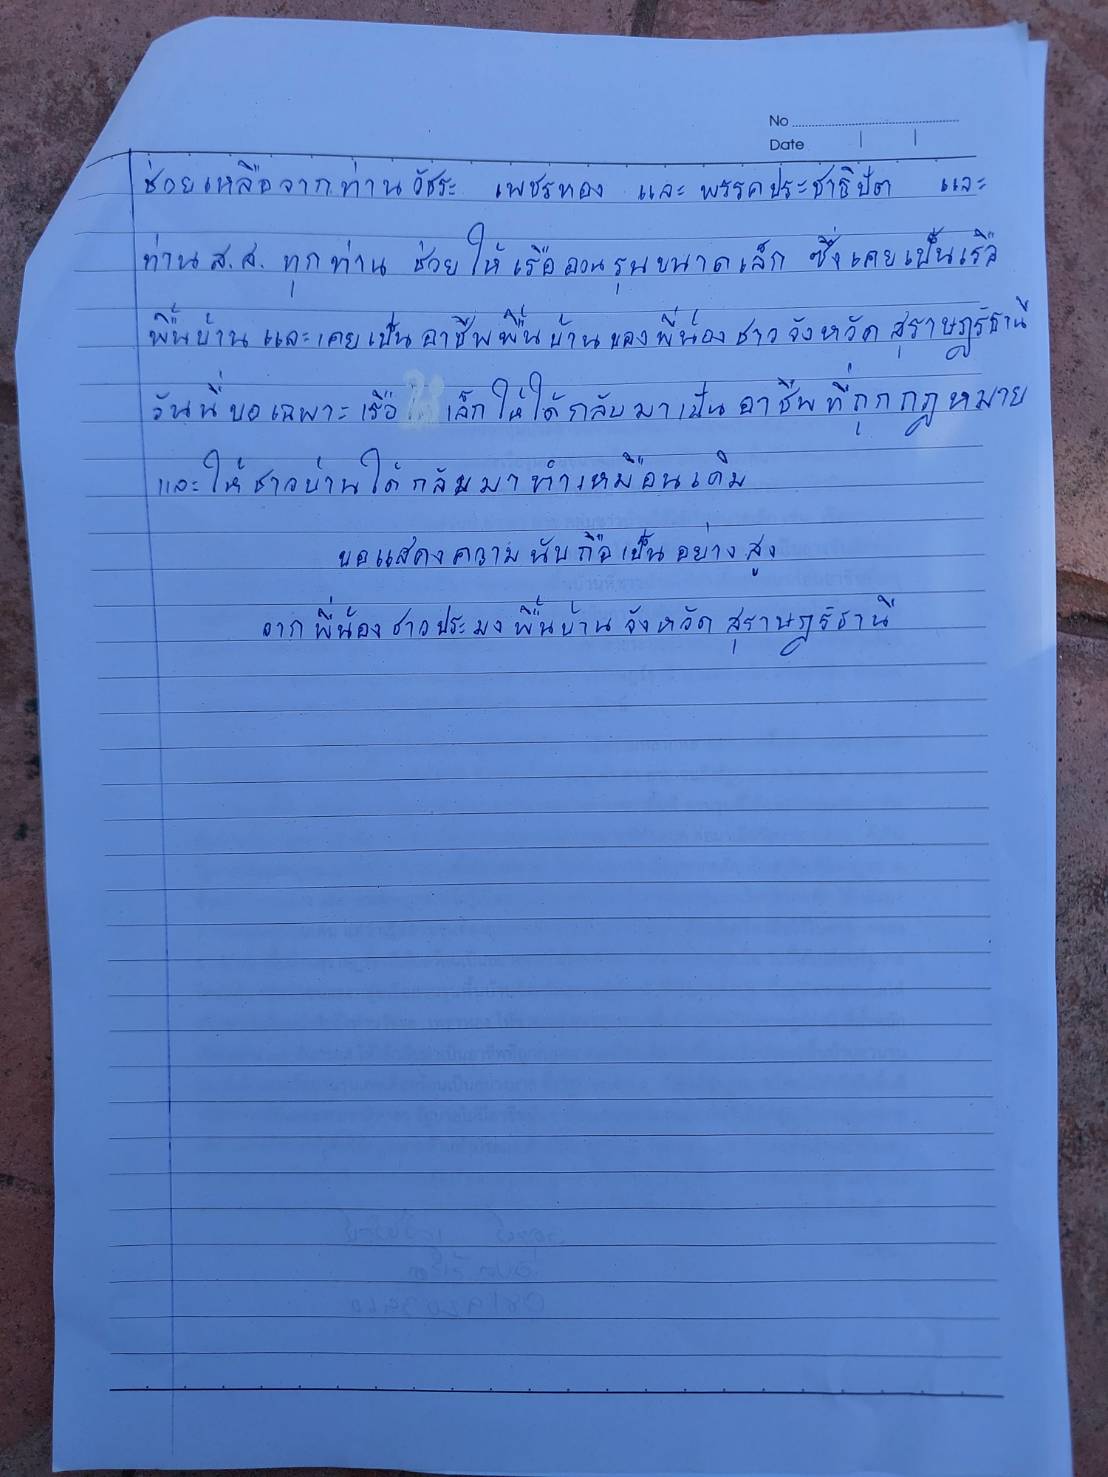 No
Date
ช่วยเหลือจากท่านวัชระ เพชรทอง และพรรคประชาธิปัต และ
ท่าน ส.ส. ทุกท่าน ช่วยให้เรืออวนรุนขนาดเล็ก ซึ่งเคยเป็นเรือ
พื้นบ้าน และเคยเป็นอาชีพพื้นบ้านของพี่น้องชาวจังหวัดสุราษฎร์ธานี
วันนี้ขอเฉพาะเรือเล็กให้ได้กลับมาเป็นอาชีพที่ถูกกฎหมาย
และให้ชาวบ้านได้กลับมาทำเหมือนเดิม
ขอแสดงความนับถือเป็นอย่างสูง
จากพี่น้องชาวประมงพื้นบ้านจังหวัดสุราษฎร์ธานี